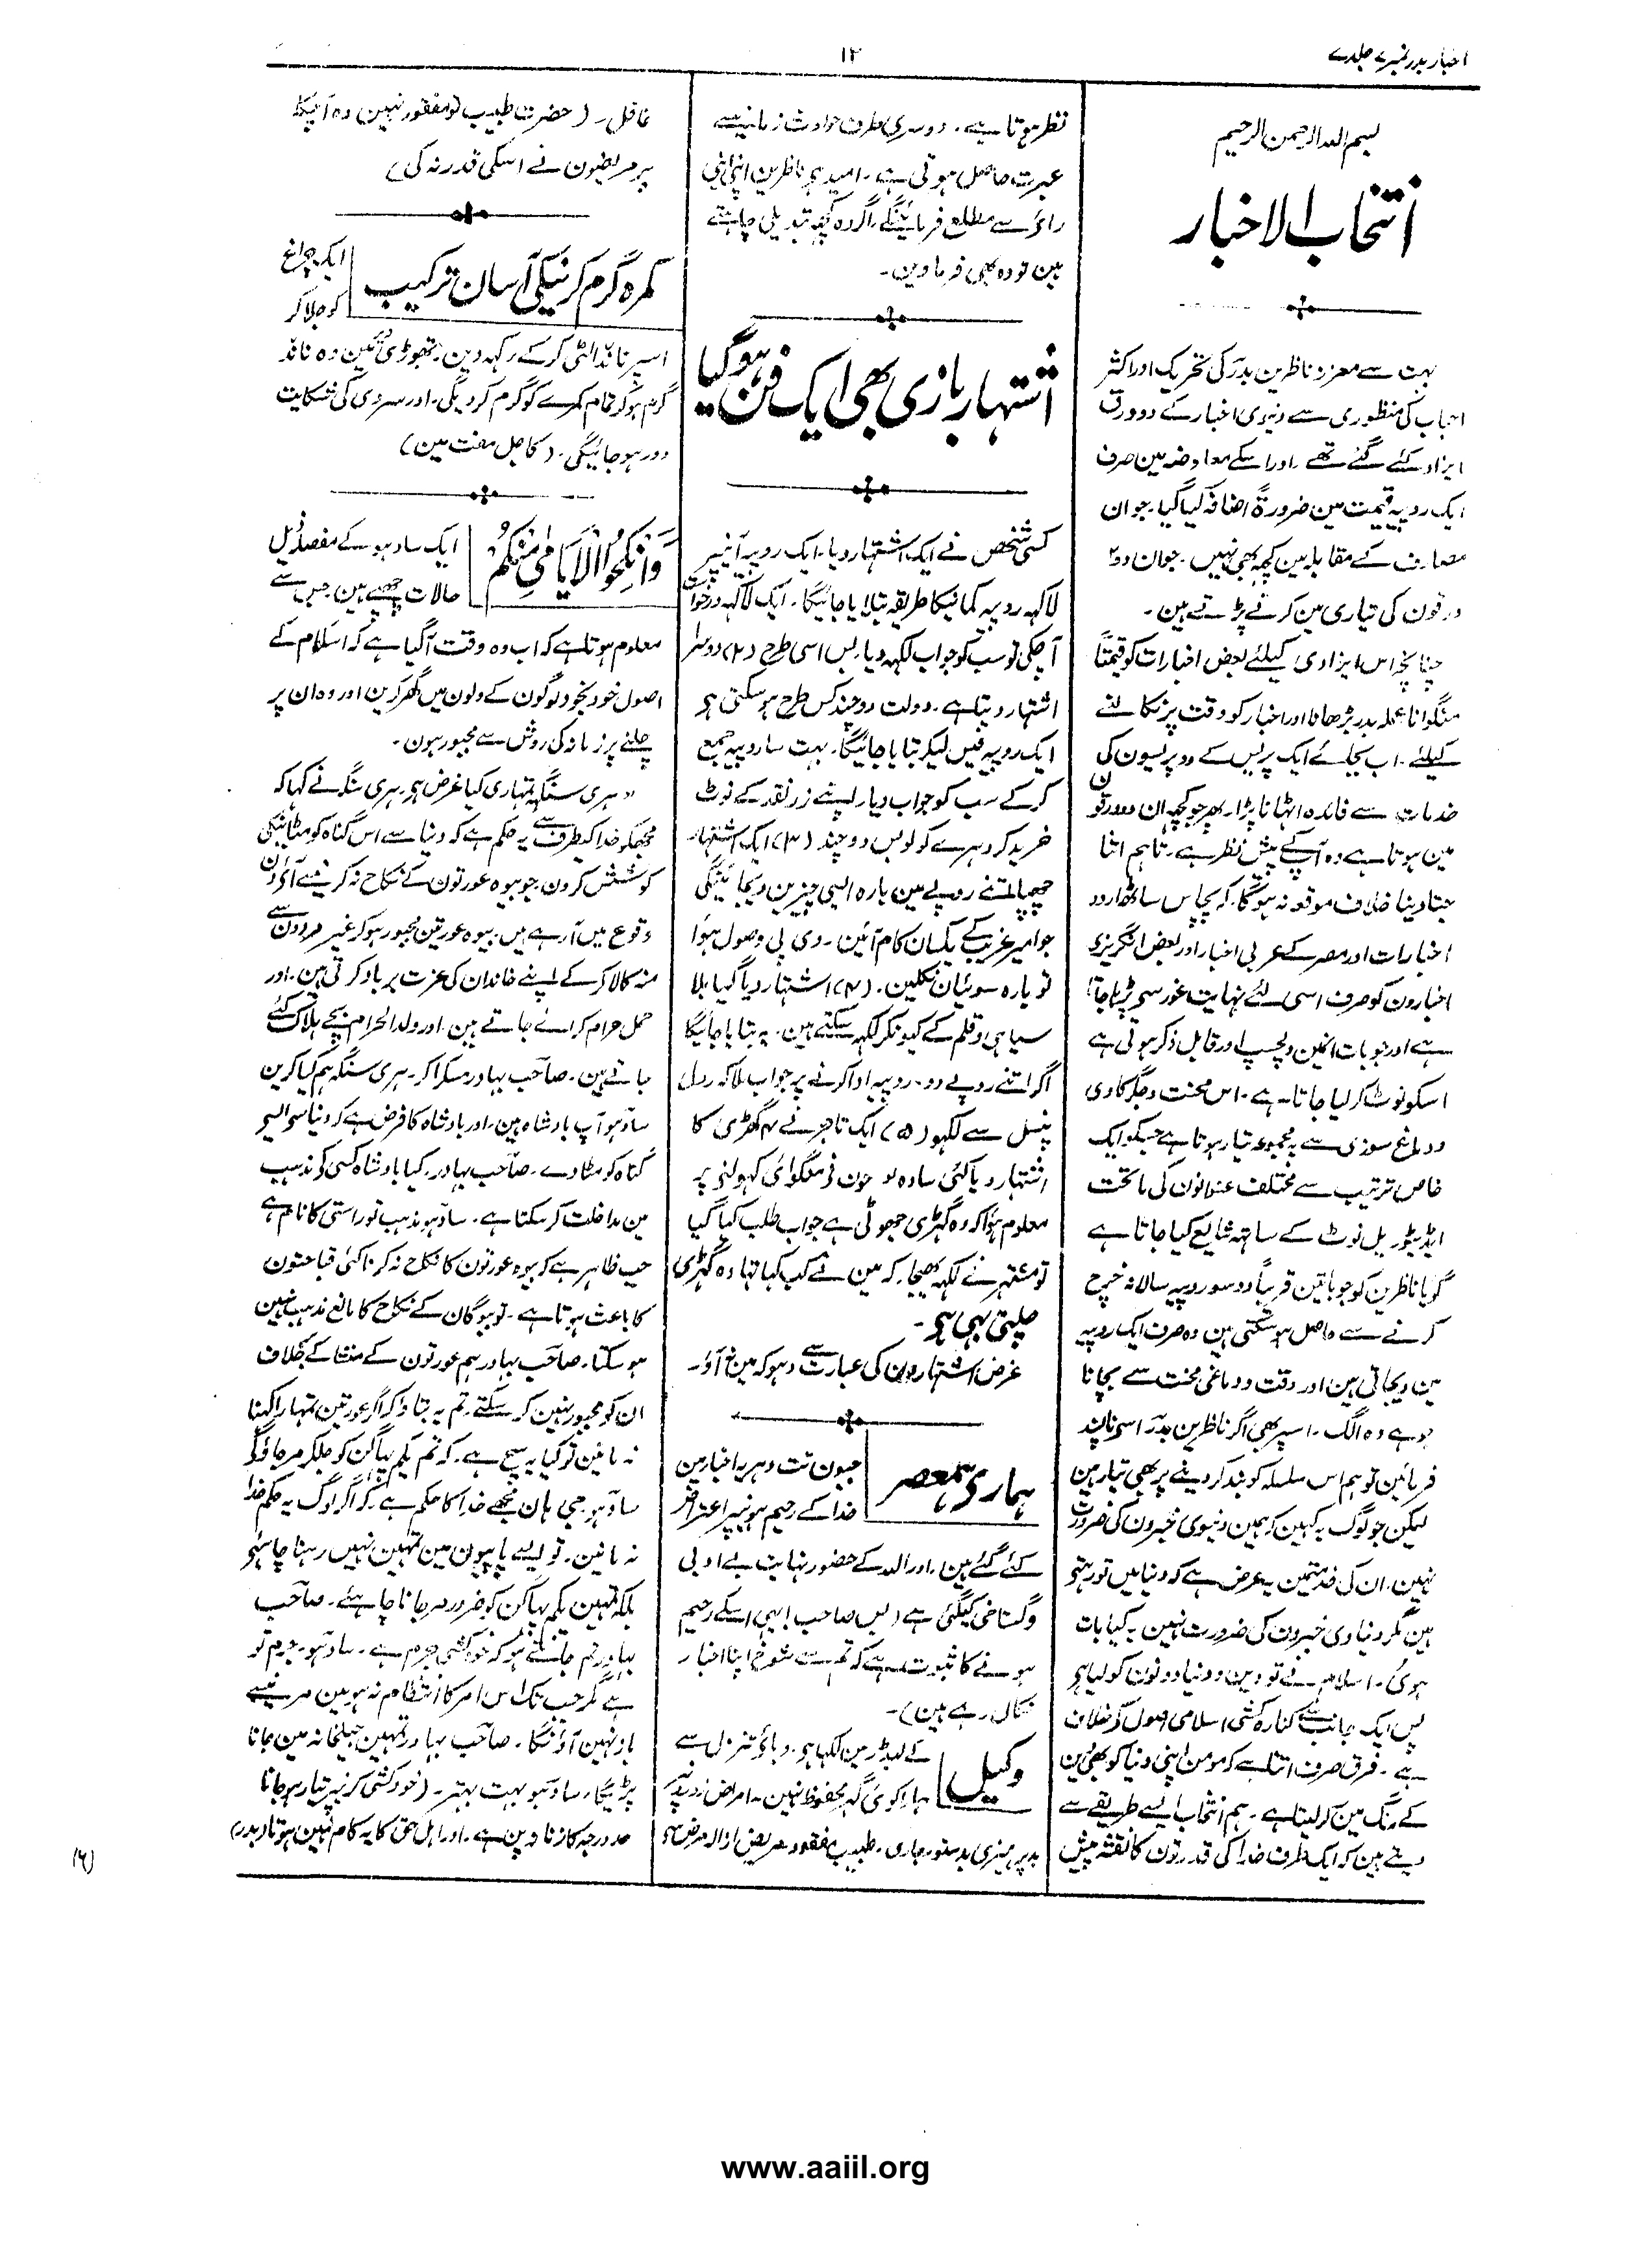 اخبار بدر نمبر ۷ جلد ۷
۱۲
بسم اللہ الرحمن الرحیم
انتخاب الاخبار
بہت سے معزز ناظرین بدر کی تحریک اور اکثر
احباب کی منظوری سے دنیوی اخبار کے دو ورق
ایزاد کئے گئے تھے ۔ اور اسکے معاوضہ مین صرف
ایک روپیہ قیمت مین ضرورۃً اضافہ کیا گیا ۔ جو ان
مصارف کے مقابلہ مین کچھ بھی نہیں ۔ جو ان دو
ورقون کی تیاری مین کرنے پڑتے ہین ۔
چنانچہ اس ایزادی کیلئے بعض اخبارات کو قیمتاً
منگوانا عملہ بدر بڑھانا اور اخبار کو وقت پر نکالنے
کیلئے ۔ اب بجائے ایک پریس کے دو پریسون کی
خدمات سے فائدہ اٹھانا پڑا ۔ پھر جو کچھ ان دو ورقون
مین ہوتا ہے وہ آپکے پیش نظر ہے ۔ تاہم اتنا
جتا دینا خلاف موقعہ نہ ہوگا ۔ کہ پچاس ساٹھ اردو
اخبارات اور مصر کے عربی اخبار اور بعض انگریزی
اخبارون کو صرف اسی لئے نہایت غور سے پڑھا جاتا
ہے اور جو بات انمین دلچسپ اور قابل ذکر ہوتی ہے
اسکو نوٹ کر لیا جاتا ہے ۔ اس محنت و جگر کاوی
و دماغ سوزی سے یہ مجموعہ تیار ہوتا ہے جسکو ایک
خاص ترتیب سے مختلف عنوانون کی ماتحت
ایڈیٹوریل نوٹ کے ساتھ شایع کیا جاتا ہے
گویا ناظرین کو جو باتین قریباً دو سو روپیہ سالانہ خرچ
کرنے سے حاصل ہو سکتی ہین وہ صرف ایک روپیہ
مین دیجاتی ہین اور وقت و دماغی محنت سے بچانا
ہے وہ الگ ۔ اسپر بھی اگر ناظرین بدر اسے ناپسند
فرمائین تو ہم اس سلسلہ کو بند کر دینے پر بھی تیار ہین
لیکن جو لوگ یہ کہین کہ ہمین دنیوی خبرون کی ضرورت
نہین ۔ ان کی خدمتمین یہ عرض ہے کہ دنیا میں تو رہتے
ہین مگر دنیاوی خبرون کی ضرورت نہین یہ کیا بات
ہوئی ۔ اسلام نے تو دین و دنیا دونون کو لیا ہے
پس ایک جانب سے کنارہ کشی اسلامی اصول کے خلاف
ہے ۔ فرق صرف اتنا ہے کہ مومن اپنی دنیا کو بھی دین
کے رنگ مین کر لیتا ہے ۔ ہم انتخاب ایسے طریقے سے
دیتے ہین کہ ایک طرف خدا کی قدرتون کا نقشہ پیش
نظر ہوتا ہے ۔ دوسری طرف حوادث زمانہ سے
عبرت حاصل ہوتی ہے ۔ امید ہے ناظرین اپنی اپنی
رائے سے مطلع فرمائینگے ۔ اگر وہ کچھ تبدیلی چاہتے
ہین تو وہ بھی فرماوین ۔
اشتہار بازی بھی ایک فن ہو گیا
کسی شخص نے ایک اشتہار دیا ۔ ایک روپیہ آنیپر
لاکھ روپیہ کمانیکا طریقہ بتلایا جائیگا ۔ ایک لاکھ درخواست
آ چکی تو سب کو جواب لکھدیا ۔ بس اسی طرح (۲) دوسرا
اشتہار دیتا ہے ۔ دولت دو چند کس طرح ہو سکتی ہے
ایک روپیہ فیس لیکر بتایا جائیگا ۔ بہت سا روپیہ جمع
کر کے سب کو جواب دیا ۔ اپنے زر نقد کے نوٹ
خرید کر دہرے کر لو بس دو چند (۳) ایک اشتہار
چھپا اتنے روپے مین بارہ ایسی چیزین دیجائینگی
جو امیر غریب کے یکسان کام آئین ۔ وی پی وصول ہوا
تو بارہ سوئیان نکلین ۔ (۴) اشتہار دیا گیا بلا
سیاہی و قلم کے کیونکر لکھ سکتے ہین ۔ یہ بتایا جائیگا
اگر اتنے روپے دو ۔ روپیہ ادا کرنے پر جواب ملا کہ رول
پنسل سے لکھو (۵) ایک تاجر نے ۴ گھڑی کا
اشتہار دیا کئی سادہ لوحون نے منگوائی کھولنے پر
معلوم ہوا کہ وہ گھڑی جھوٹی ہے جواب طلب کیا گیا
تو مشتہر نے لکھ بھیجا ۔ کہ مین نے کب کہا تھا وہ گھڑی
چلتی بہی ہے ۔
غرض اشتہارون کی عبارت سے دھوکہ مین نہ آؤ ۔
ہماری ہمعصر
جیون تت دہریہ اخبار مین
خدا کے رحیم ہونیپر اعتراض
کئے گئے ہین ۔ اور اللہ کے حضور نہایت بے ادبی
و گستاخی کیگئی ہے (لیس صاحب ! یہی اسکے رحیم
ہونے کا ثبوت ہے کہ تم سے شوخ اپنا اخبار
نکال رہے ہین) ۔
وکیل
کے لیڈر مین لکھا ہے ۔ وبائے تنزل سے
ہمارا کوئی گھر محفوظ نہین ۔ امراض زور پر
بدپرہیزی بدستور جاری ۔ طبیب مفقود مریض ازالہ مرض سے
غافل ۔ (حضرت طبیب تو مفقود نہین وہ آچکا
پر مریضون نے اسکی قدر نہ کی)
کمرہ گرم کرنیکی آسان ترکیب
ایک چراغ
کو جلا کر
اسپر ناند الٹی کر کے رکھ دین ۔ تھوڑی دیر مین وہ ناند
گرم ہو کر تمام کمرے کو گرم کر دیگی ۔ اور سردی کی شکایت
دور ہو جائیگی ۔ (کاجل مفت مین)
وَانْکِحُوا الْاَیَامٰی مِنْکُمْ
ایک سادہو کے مفصلہ ذیل
حالات چھپے ہین جس سے
معلوم ہوتا ہے کہ اب وہ وقت آگیا ہے کہ اسلام کے
اصول خود بخود لوگون کے دلون میں گھر کرین اور وہ ان پر
چلنے پر زمانہ کی روش سے مجبور ہون ۔
"ہری سنگہ تمہاری کیا غرض ہے ۔ ہری سنگہ نے کہا کہ
مجھکو خدا کیطرف سے یہ حکم ہے کہ دنیا سے اس گناہ کو مٹانیکی
کوشش کرون جو بیوہ عورتون کے نکاح نہ کرنیسے آئے دن
وقوع میں آ رہے ہیں ۔ بیوہ عورتین مجبور ہو کر غیر مردون سے
منہ کالا کر کے اپنے خاندان کی عزت برباد کرتی ہین ۔ اور
حمل حرام کرائے جاتے ہین ۔ اور ولد الحرام بچے ہلاک کئے
جاتے ہین ۔ صاحب بہادر مسکرا کر ۔ ہری سنگہ ہم کیا کرین
سادہو آپ بادشاہ ہین ۔ اور بادشاہ کا فرض ہے کہ دنیا سے ایسے
گناہ کو مٹا دے ۔ صاحب بہادر ۔ کیا بادشاہ کسی کے مذہب
مین مداخلت کر سکتا ہے ۔ سادہو مذہب تو راستی کا نام ہے
جب ظاہر ہے کہ بیوہ عورتون کا نکاح نہ کرنا کئی قباحتون
کا باعث ہوتا ہے ۔ تو بیوگان کے نکاح کا مانع مذہب نہین
ہو سکتا ۔ صاحب بہادر ہم عورتون کے منشا کے خلاف
ان کو مجبور نہین کر سکتے ۔ تم یہ بتاؤ کہ اگر عورتین تمہارا کہنا
نہ مانین تو کیا یہ سچ ہے ۔ کہ تم یکم پھاگن کو جلکر مر جاؤ گے
سادہو جی ہان مجھے خدا کا حکم ہے ۔ کہ اگر لوگ یہ حکم خدا
نہ مانین ۔ تو ایسے پاپیون مین تمہین نہیں رہنا چاہئے
بلکہ تمہین یکم پھاگن کو ضرور مر جانا چاہئے ۔ صاحب
بہادر تم جانتے ہو کہ خودکشی جرم ہے ۔ سادہو ۔ جرم تو
ہے مگر جب تک اس امر کا انتظام نہ ہو مین مرنیسے
باز نہین آؤنگا ۔ صاحب بہادر تمہین جیلخانہ مین جانا
پڑیگا ۔ سادہو بہت بہتر ۔ (خودکشی کرنیپر تیار ہو جانا
حد درجہ کا زنانہ پن ہے ۔ اور اہل حق کا یہ کام نہین ہوتا ۔ بدر)
(۶)
www.aaiil.org